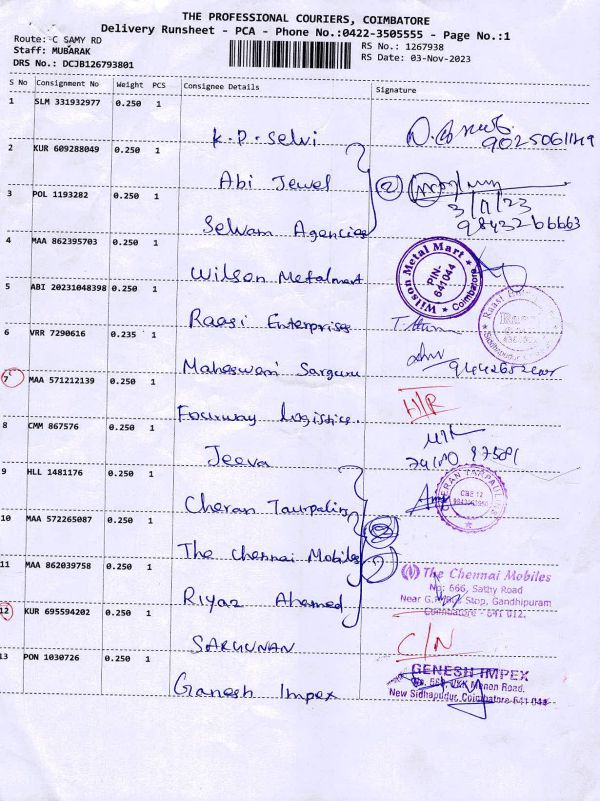 THE PROFESSIONAL COURIERS, COIMBATORE
Delivery Runsheet - PCA - Phone No.:0422-3505555 - Page No.:1
Route: C SAMY RD
Staff: MUBARAK
DRS No.: DCJB126793801
RS No.: 1267938
RS Date: 03-Nov-2023
S No Consignment No Weight PCS Consignee Details Signature
1 SLM 331932977 0.250 1
K.P.Selvi
2 KUR 609288049 0.250 1
Abi Jewel
3 POL 1193282 0.250 1
3/11/23
Selvam Agencies
4 MAA 862395703 0.250 1
Wilson Metalmart
Wilson Metal Mart
PIN-641044
Coimbatore
5 ABI 20231048398 0.250 1
Raasi Enterprises
6 VRR 7290616 0.235 1
Maheswari
7 MAA 571212139 0.250 1
Fourway Logistics
H/R
8 CMM 867576 0.250 1
Jeeva
9 HLL 1481176 0.250 1
Cheran Taurpalins
10 MAA 572265087 0.250 1
The Chennai Mobiles
11 MAA 862039758 0.250 1
The Chennai Mobiles
No: 666, Sathy Road
Stop, Gandhipuram
Coimbatore - 641 012.
Riyaz Ahamed
12 KUR 695594202 0.250 1
SARGUNAN
C/N
13 PON 1030726 0.250 1
Ganesh Impex
GENESH IMPEX
Menon Road.
New Sidhapudur, Coimbatore-641 044